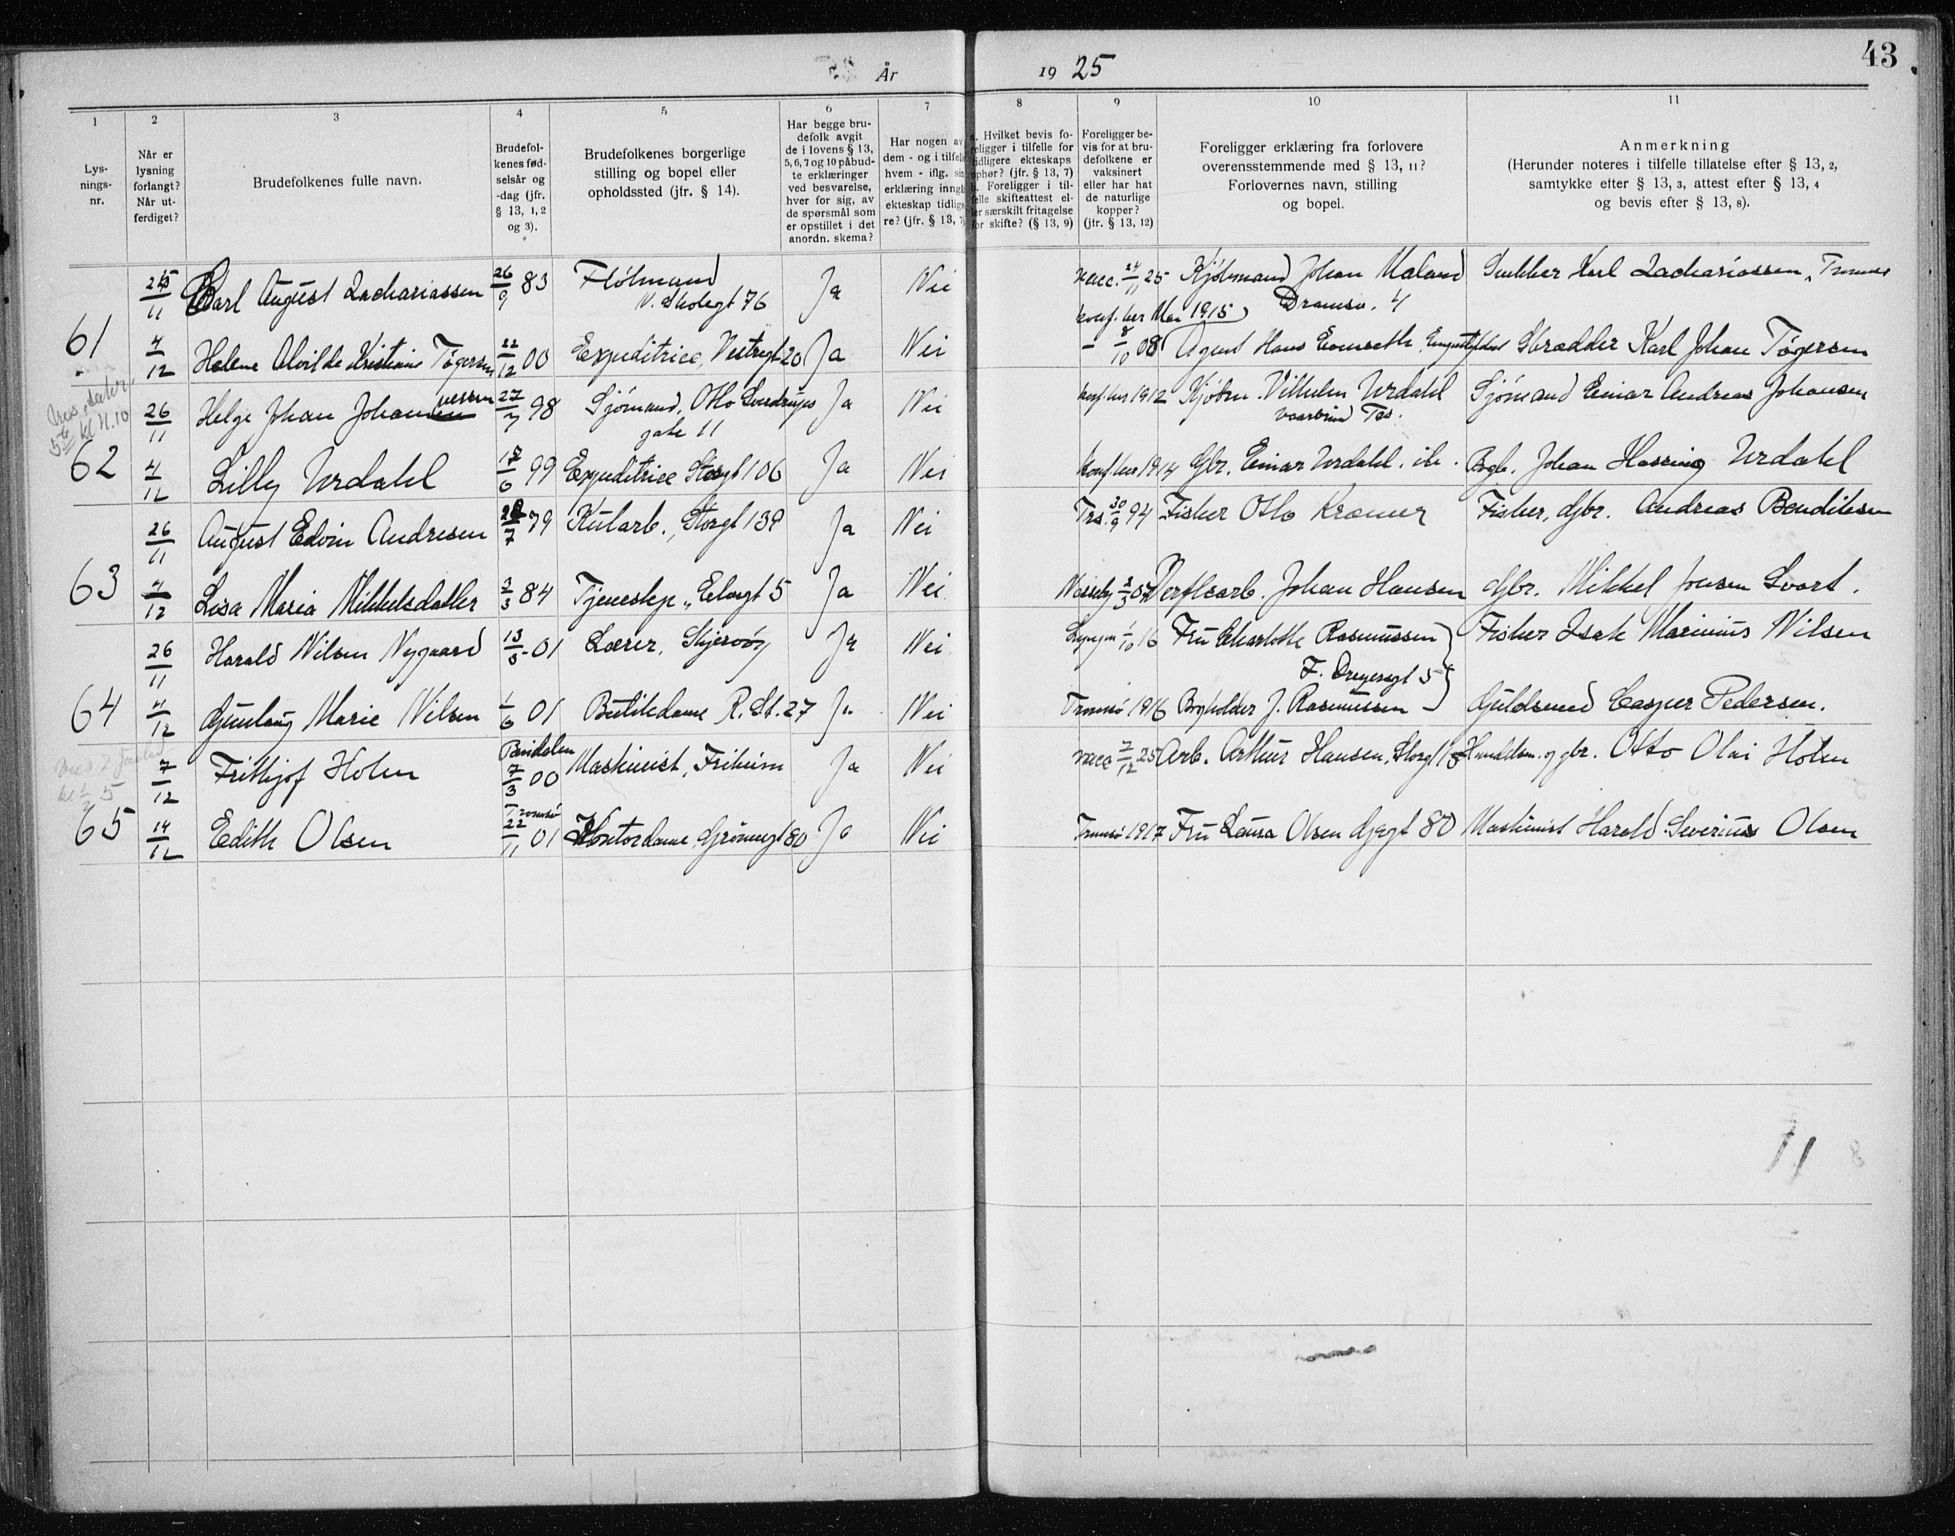 År 1925
43
1 2 3 4 5 6 7 8 9 10 11
Lys-
nings-
nr.
Når er
lysning
forlangt?
Når ut-
ferdiget?
Brudefolkenes fulle navn.
Brudefol-
kenes fød-
selsår og
-dag (jfr.
§ 13, 1, 2
og 3).
Brudefolkenes borgerlige
stilling og bopel eller
opholdssted (jfr. § 14).
Har begge bru-
defolk avgit
de i lovens § 13,
5, 6, 7 og 10 påbud-
te erklæringer
ved besvarelse,
hver for sig, av
de spørsmål som
er opstillet i det
anordn. skema?
Har nogen av
dem - og i tilfelle
hvem - iflg. sin
erklæring inngå
ekteskap tidlige
re? (jfr. § 13, 7)
a. Hvilket bevis fo-
religger i tilfelle for
tidligere ekteskaps
ophør? (jfr. § 13, 7)
b. Foreligger i til-
felle skifteattest el-
ler særskilt fritagelse
for skifte? (§ 13, 9)
Foreligger be-
vis for at bru-
defolkene er
vaksinert
eller har hat
de naturlige
kopper?
(jfr. § 13, 12)
Foreligger erklæring fra forlovere
overensstemmende med § 13, 11?
Forlovernes navn, stilling
og bopel.
Anmerkning
(Herunder noteres i tilfelle tillatelse efter § 13, 2,
samtykke efter § 13, 3, attest efter § 13, 4
og bevis efter § 13, 8).
25/11 Carl August Zachariassen 26/9 83 Fløtmand Ja Nei vacc. 24/11 25 Kjøbmand Johan Maland Snekker Karl Zachariassen, Tromsø
V. Skolegt 76 konf. her Mai 1915 Dramsv. 4
61 4/12 Helene Alvilde Kristiane Tøgersen 22/12 00 Expeditrice, Vestregt 20 Ja Nei - 8/10 08 Agent Hans Gbrædder Karl Johan Tøgersen
26/11 Helge Johan Johansen 27/7 98 Sjømand, Otto Sverdrups Ja Nei konf. her 1912 Kjøbm. Vilhelm Urdahl Sjømand Einar Andreas Johansen
gate 11
62 4/12 Lilly Urdahl 17/6 99 Expeditrice Storgt 106 Ja Nei konf her 1914 Gbr. Einar Urdahl. ib. Bgb. Johan Hassing Urdahl
26/11 August Edvin Andresen 28/7 79 Kularb., Storgt 139 Ja Nei Trs. 30/9 94 Fisker Otto Kræmer Fisker, gbr. Andreas Bendiksen
63 4/12 Lisa Maria Mikkelsdatter 3/3 84 Tjenestep., Elvegt 5 Ja Nei 2/3 Verftsarb. Johan Hansen gbr. Mikkel Jonsen Svart.
26/11 Harald Nilsen Nygaard 13/5 01 Lærer, Skjervøy Ja Nei Lyngen 1/10 16 Fru Charlotte Rasmussen Fisker Isak Marinius Nilsen
F. Dreyersgt 5
64 4/12 Gunlaug Marie Nilsen 1/6 01 Butikdame R. St. 27 Ja Nei Tromsø 1916 Bogholder J. Rasmussen Guldsmed Casper Pedersen.
7/12 Frithjof Holm 7/3 00 Maskinist, Ja Nei vacc 7/12 25 Arb. Arthur Hansen, Storgt Handelsm. og gbr. Otto Olai Holm
65 14/12 Edith Olsen Tromsø 22/11 01 Kontordame, Grønnegt 80 Ja Nei Tromsø 1917 Fru Laura Olsen Gjøgt 80 Maskinist Harald Severius Olsen